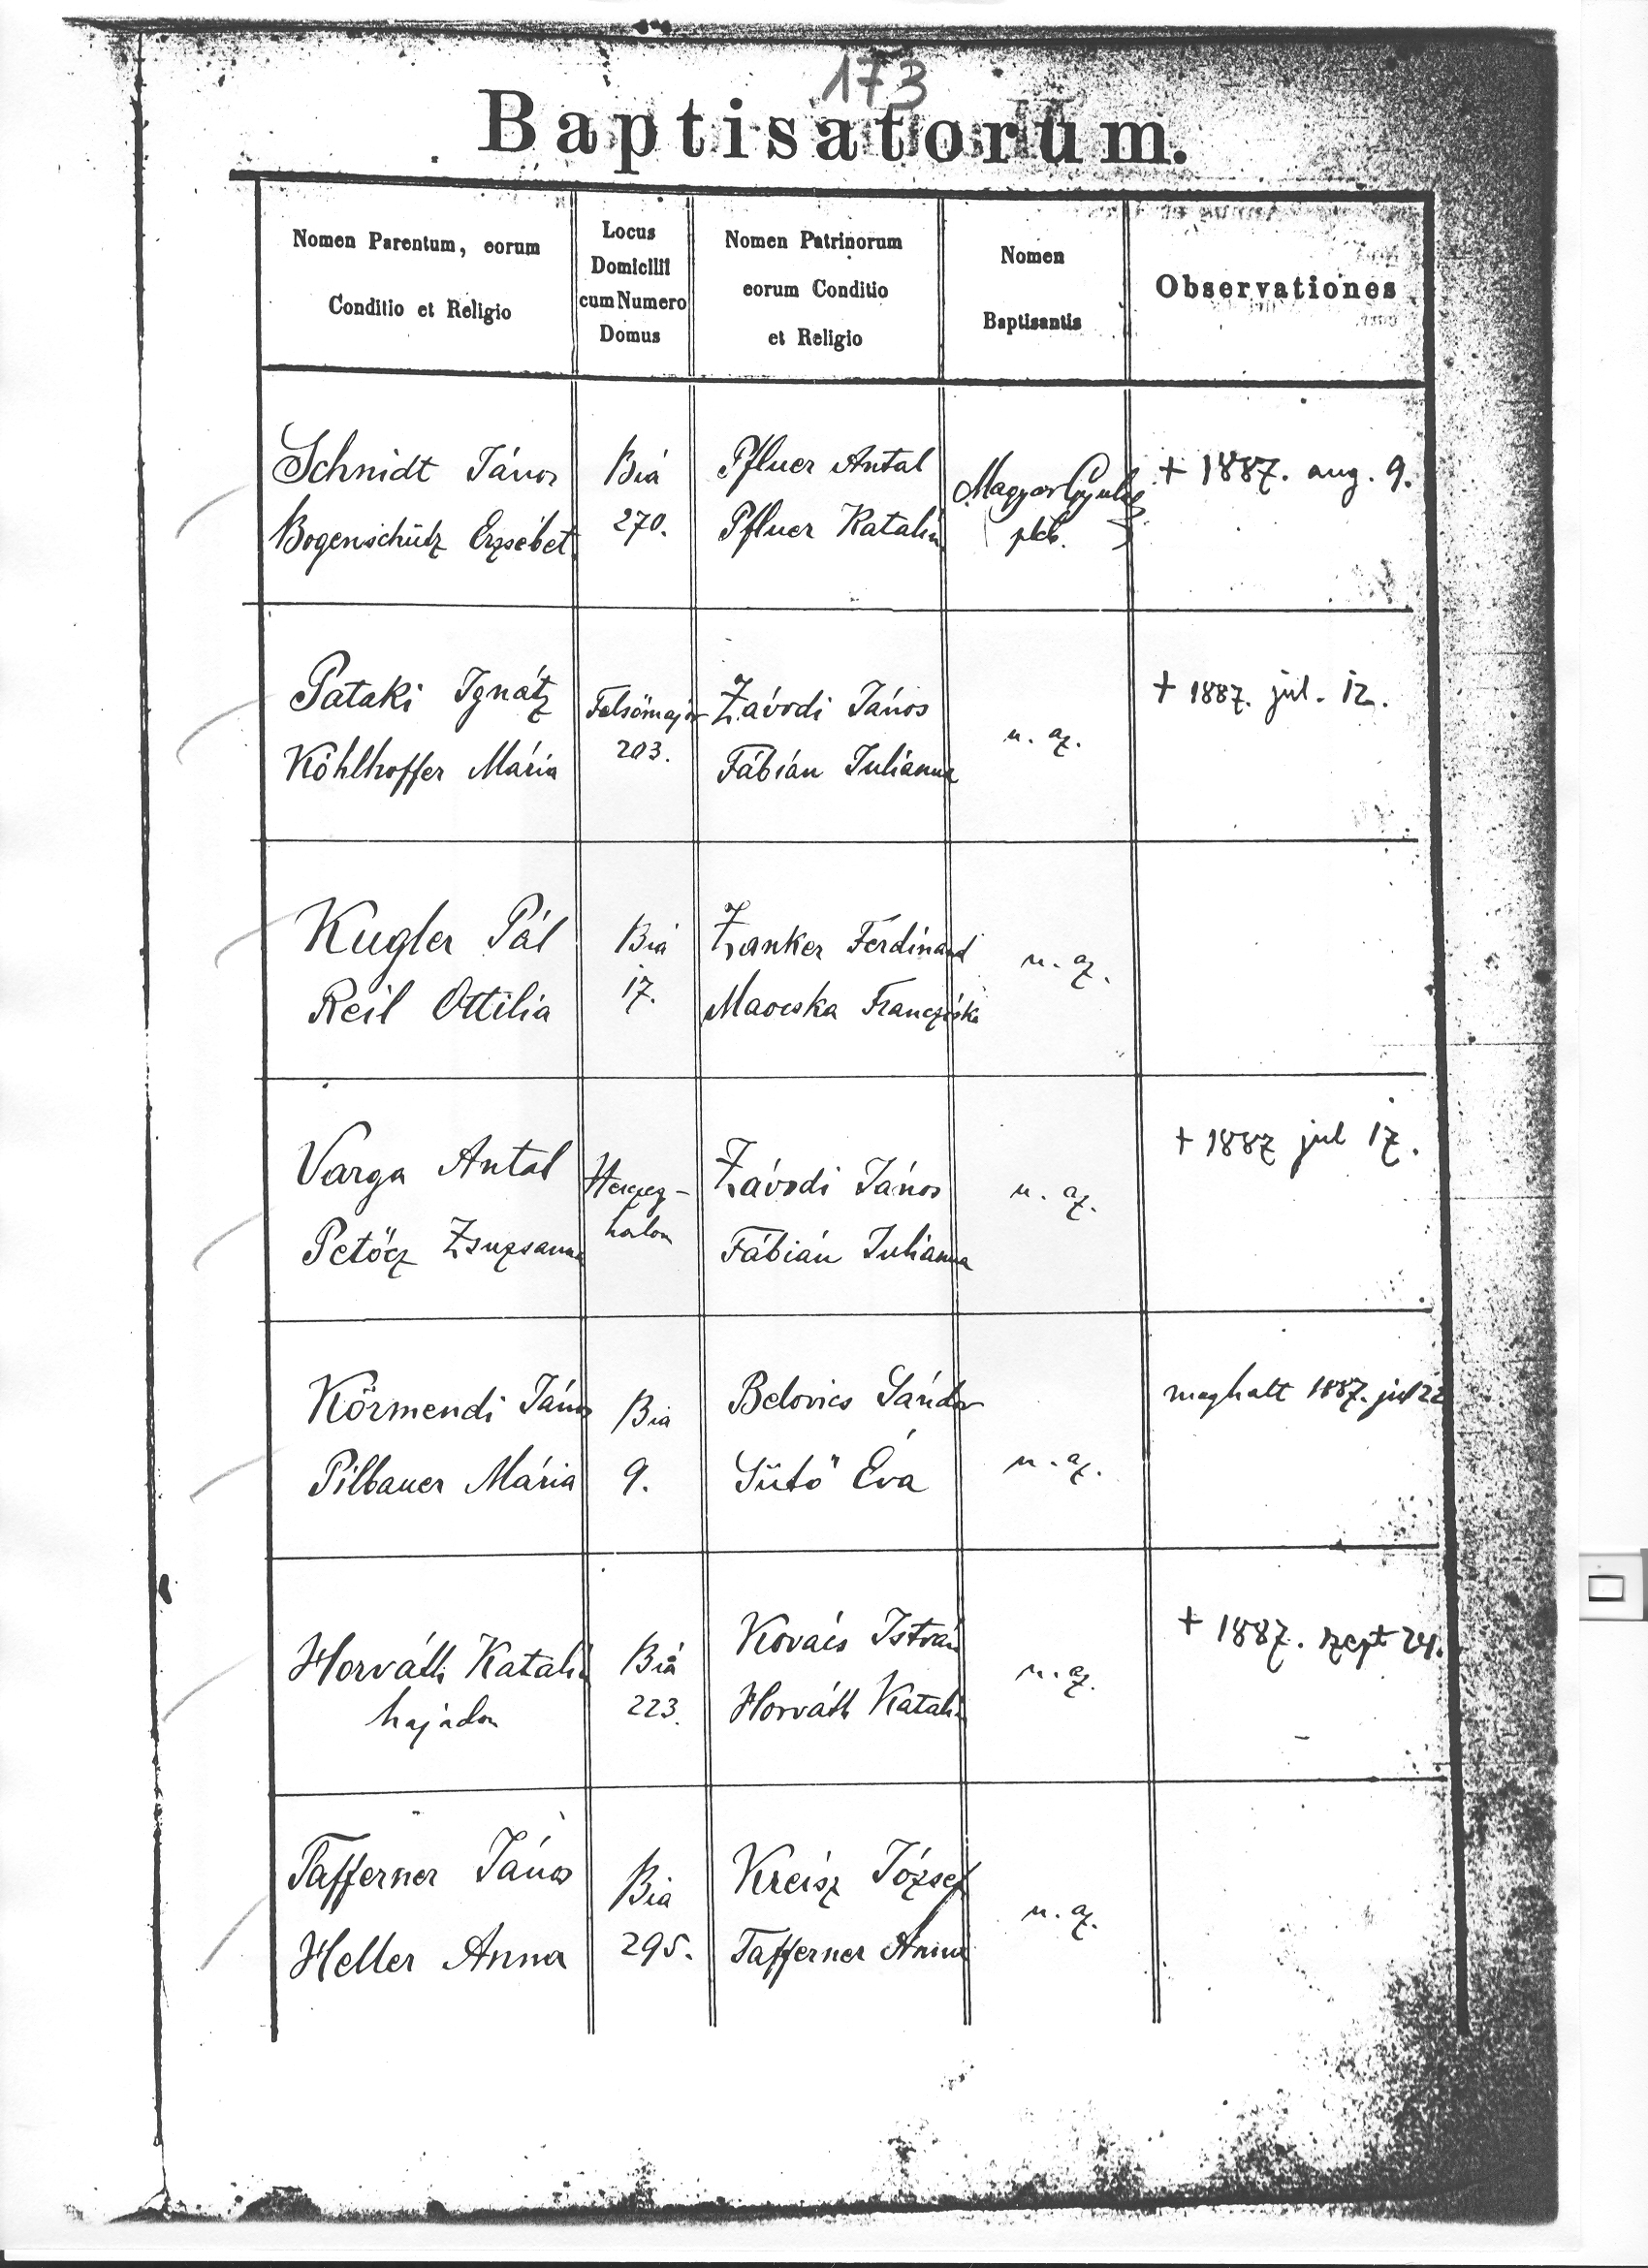 173
Baptisatorum.
Nomen Parentum, eorum
Conditio et Religio
Locus
Domicilii
cum Numero
Domus
Nomen Patrinorum
eorum Conditio
et Religio
Nomen
Baptisantis
Observationes
Schnidt János
Bogenschütz Erzsébet
Biá
270.
Pfluer Antal
Pfluer Katalin
Magyar Gyula
plb.
+ 1887. aug. 9.
Pataki Ignátz
Köhlhoffer Mária
Felsőmajor
203.
Závodi János
Fábián Julianna
u. az.
+ 1887. jul. 12.
Kugler Pál
Reil Ottilia
Bia
17.
Zanker Ferdinand
Francziska
u. az.
Varga Antal
Petőcz Zsuzsanna
Herczeg-
halom
Závodi János
Fábián Julianna
u. az.
+ 1887 jul 17.
Körmendi János
Pilbauer Mária
Bia
9.
Belovics Sándor
Sütő Éva
u. az.
meghalt 1887. jul 22
Horváth Katalin
hajadon
Biá
223.
Kovács István
Horváth Katalin
u. az.
+ 1887. szept 24.
Tafferner János
Heller Anna
Bia
295.
Kreisz József
Tafferner Anna
u. az.